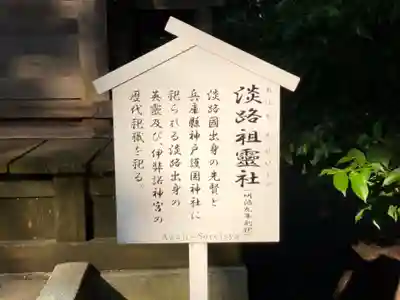 淡路祖靈社(明治九年創祀)
淡路國出身の先賢と
兵庫縣神戸護国神社に
祀られる淡路出身の
英靈及び、伊弉諾神宮の
歴代祀職を祀る
Awaji-Soreisya